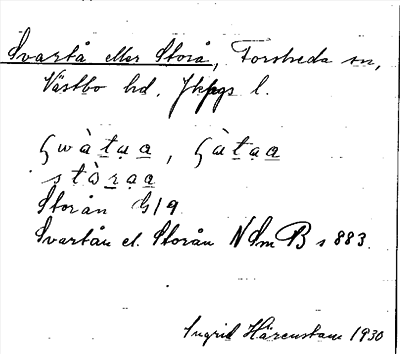 Svartå eller Storå, Forsheda sn,
Västbo hd. Jkpgs l.
ʂwàṭa̱a̱, ʂàṭa̱a̱
stòṟa̱a̱
Storån G19
Svartån el. Storån NSmB s 883.
Ingrid Härenstam 1930